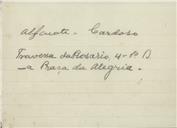 Alfaiate - Cardoso
Travessa do Rosario, 4-1º D.
à Praça da Alegria.